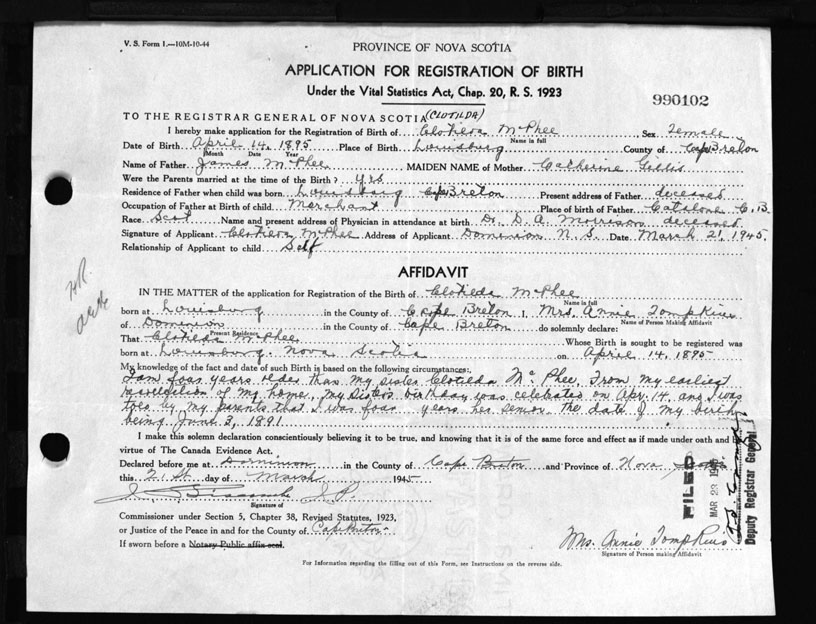 V. S. Form 1.—10M-10-44
PROVINCE OF NOVA SCOTIA
APPLICATION FOR REGISTRATION OF BIRTH
Under the Vital Statistics Act, Chap. 20, R. S. 1923
990102
TO THE REGISTRAR GENERAL OF NOVA SCOTIA (CLOTILDA)
I hereby make application for the Registration of Birth of Clotilda McPhee Sex Female
Name in full
Date of Birth April 14, 1895 Place of Birth Louisburg County of Cape Breton
Month Date Year
Name of Father James McPhee MAIDEN NAME of Mother Catherine Gillis
Were the Parents married at the time of the Birth? yes
Residence of Father when child was born Louisburg Cape Breton Present address of Father deceased
Occupation of Father at Birth of child Merchant Place of birth of Father Catalone C. B.
Race Scot Name and present address of Physician in attendance at birth Dr. D. A. Morrison deceased
Signature of Applicant Clotilda McPhee Address of Applicant Dominion N. S. Date March 21, 1945.
Relationship of Applicant to child Self
AFFIDAVIT
IN THE MATTER of the application for Registration of the Birth of Clotilda McPhee
Name in full
born at Louisburg in the County of Cape Breton I, Mrs. Annie Tompkins
Name of Person Making Affidavit
of Dominion in the County of Cape Breton do solemnly declare:
Present Residence
That Clotilda McPhee Whose Birth is sought to be registered was
born at Louisburg, Nova Scotia on April 14, 1895
My knowledge of the fact and date of such Birth is based on the following circumstances:
I am foar years older than my sister Clotilda McPhee, From my earliest
recollection of my home, my sisters birthday was celebrated on Apr. 14. and I was
told by my parents that I was foar years her senior the date of my birth
being June 3, 1891
I make this solemn declaration conscientiously believing it to be true, and knowing that it is of the same force and effect as if made under oath and by
virtue of The Canada Evidence Act.
Declared before me at Dominion in the County of Cape Breton and Province of Nova Scotia
this 21st day of March 1945
J. P.
Signature of
Commissioner under Section 5, Chapter 38, Revised Statutes, 1923,
or Justice of the Peace in and for the County of Cape Breton
If sworn before a Notary Public affix seal.
Mrs. Annie Tompkins
Signature of Person making Affidavit
For Information regarding the filling out of this Form, see Instructions on the reverse side.
FILED
MAR 23
Deputy Registrar General